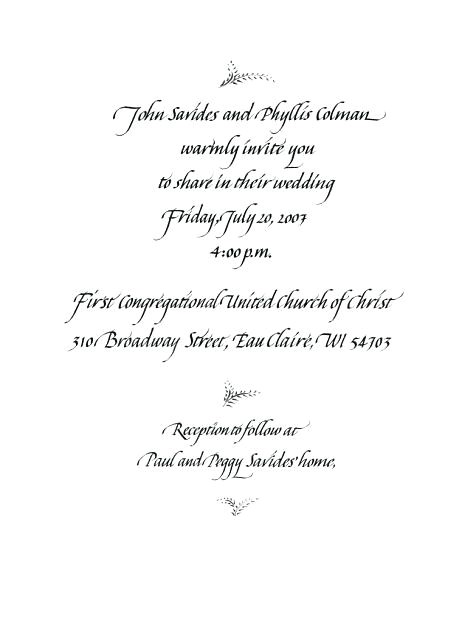 John Savides and Phyllis Colman
warmly invite you
to share in their wedding
Friday, July 20, 2007
4:00 p.m.
First Congregational United Church of Christ
310 Broadway Street, Eau Claire, WI 54703
Reception to follow at
Paul and Peggy Savides' home,